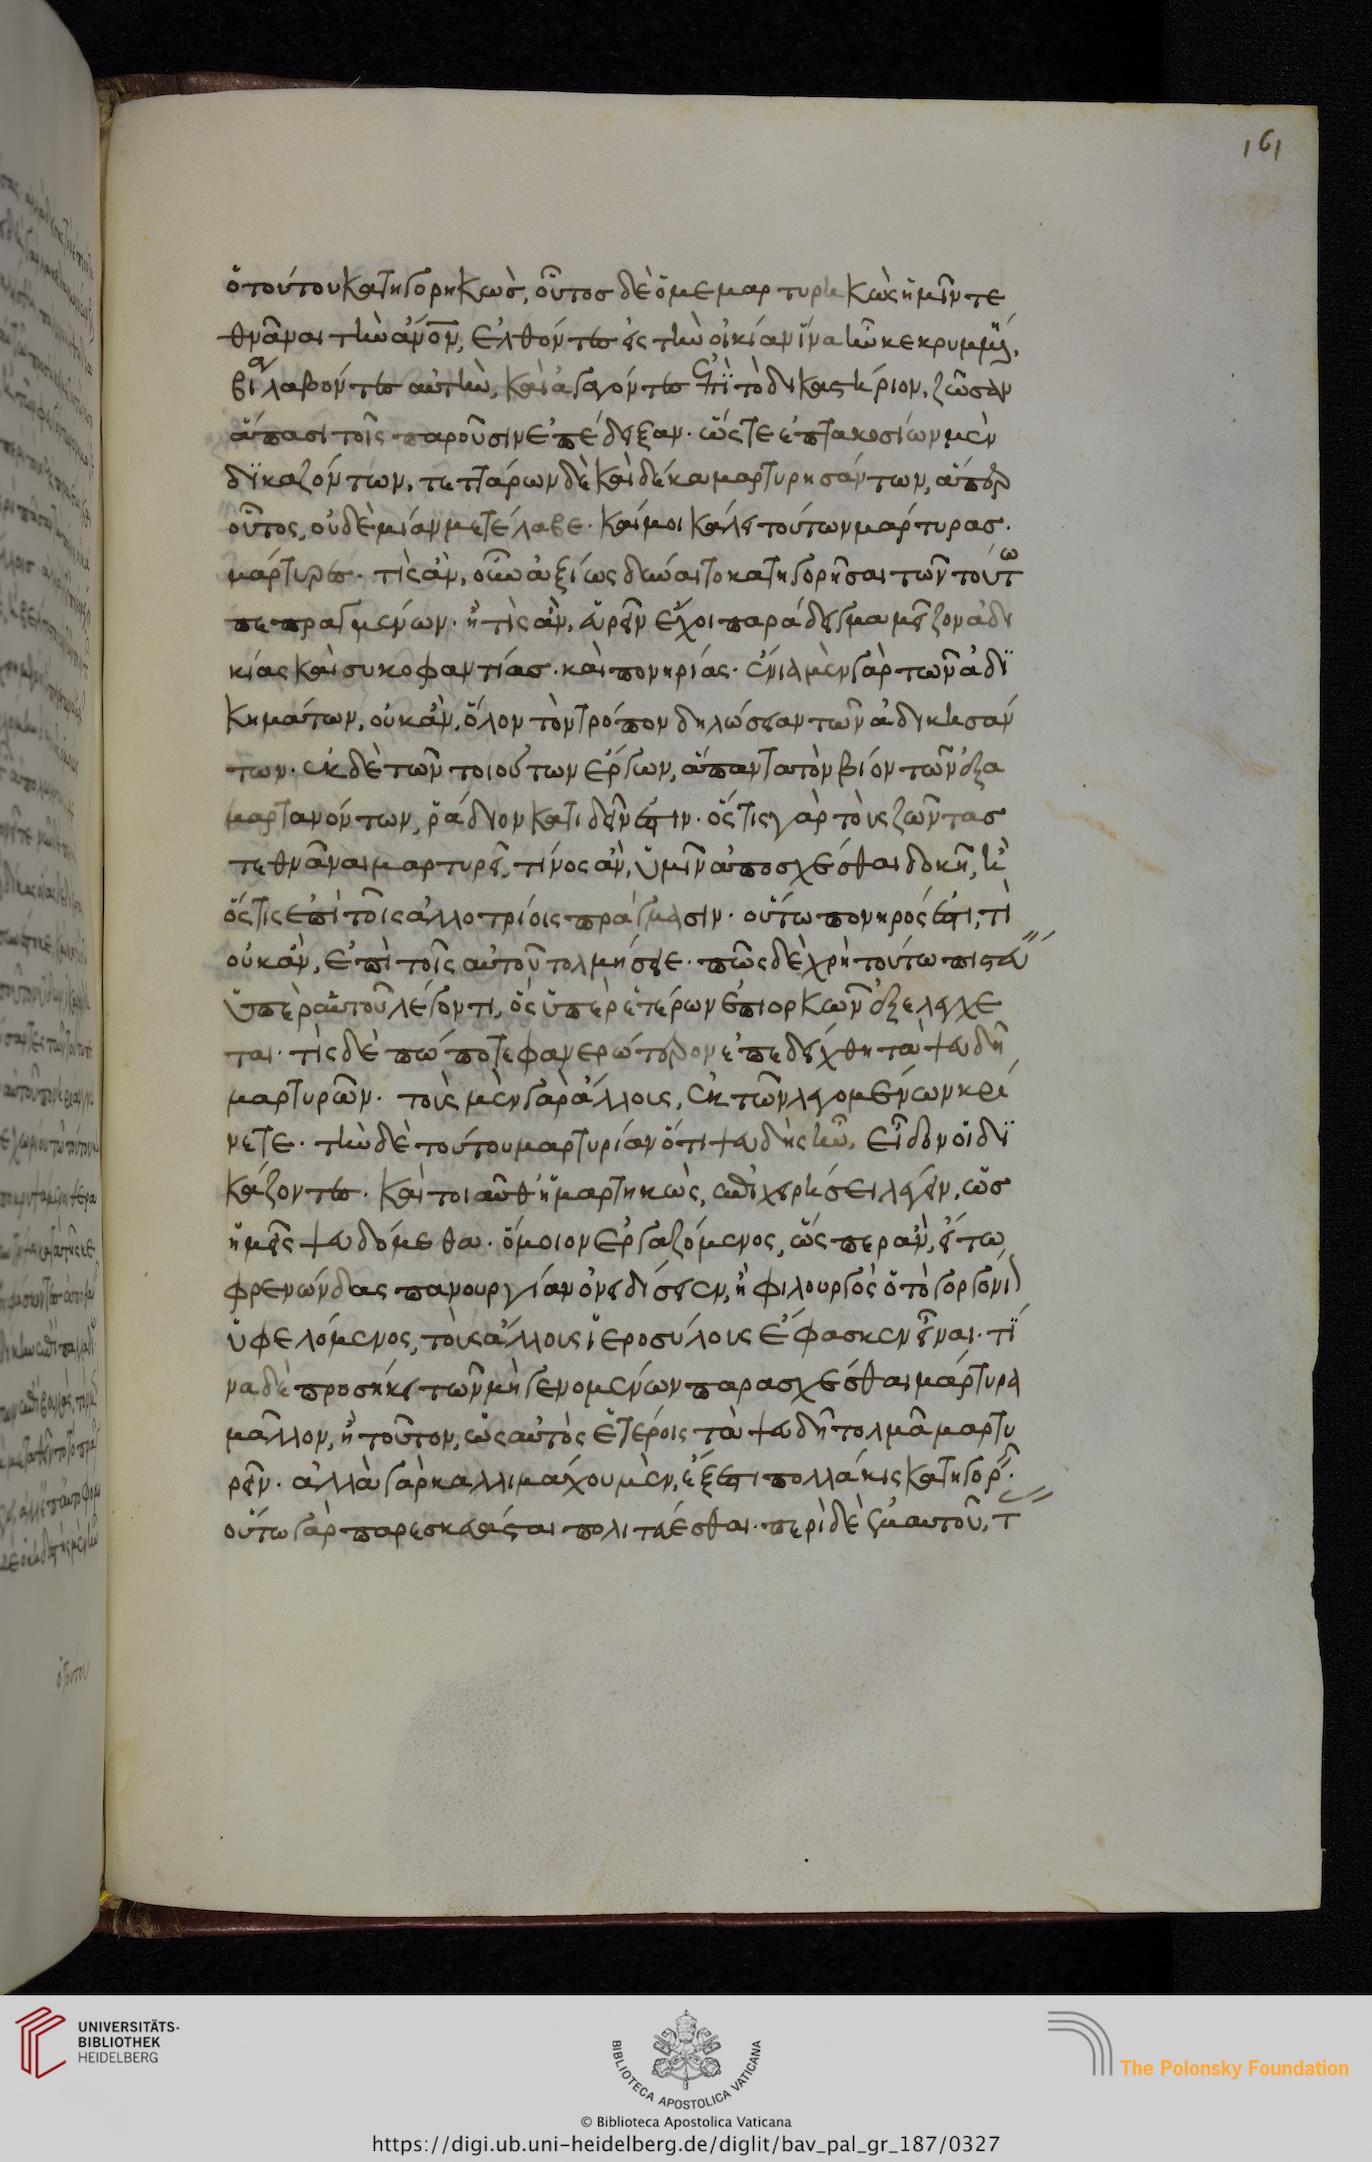 161
ὁ τούτου κατηγορηκὼσ, οὗτοσ δὲ ὁ μεμαρτυρηκὼς ἡμῖν τε
θνᾶναι τὴν ἄν̅ο̅ν, ἐλθόντεσ εἰς τὴν οἰκίαν ἵνα ἦν κεκρυμμέν,
βίᾳ λαβόντεσ αὐτὴν, καὶ ἀγαγόντεσ ἐπὶ τὸ δικαστήριον, ζῶσαν
ἅπασι τοῖς παροῦσιν ἐπέδειξαν. ὥστε ἑπτακοσίων μὲν
δικαζόντων, τεττάρων δὲ καὶ δέκα μαρτυρησάντων, ἅπερ
οὗτος, οὐδὲ μίαν μετέλαβε. καί μοι κάλει τούτων μάρτυρασ.
μάρτυρεσ. τίς ἂν, οὖν ἀξίως δύναιτο κατηγορῆσαι τῶν τούτω
πεπραγμένων. ἢ τίς ἂν, εὑρεῖν ἔχοι παράδειγμα μεῖζον ἀδι
κίας καὶ συκοφαντίασ. καὶ πονηρίας. ἔνια μὲν γὰρ τῶν ἀδι
κημάτων, οὐκ ἂν, ὅλον τὸν τρόπον δηλώσειαν τῶν ἀδικησάν
των. ἐκ δὲ τῶν τοιούτων ἔργων, ἅπαντα τὸν βίον τῶν ἐξα
μαρτανόντων, ῥάδιον κατιδεῖν ἐστιν. ὅστις γὰρ τοὺς ζῶντασ
τεθνᾶναι μαρτυρεῖ, τίνος ἂν, ὑμῖν ἀποσχέσθαι δοκῇ, ἢ
ὅστις ἐπὶ τοῖς ἀλλοτρίοις πράγμασιν. οὕτω πονηρός ἐστι, τί
οὐκ ἂν, ἐπὶ τοῖς αὐτοῦ τολμήσειε. πῶς δὲ χρὴ τούτω πιστεύ
ὑπὲρ αὑτοῦ λέγοντι, ὃς ὑπὲρ ἑτέρων ἐπιορκῶν ἐξελήλεγκ
ται. τίς δὲ πώποτε φανερώτερον ἐπεδείχθη τὰ ψευδῆ
μαρτυρῶν. τοὺς μὲν γὰρ ἄλλους, ἐκ τῶν λεγομένων κρί
νετε. τὴν δὲ τούτου μαρτυρίαν ὅτι ψευδὴς ἦν, εἶδον οἱ δι
κάζοντεσ. καὶ τοιαῦθ' ἡμαρτηκὼς, ἐπιχειρήσει λέγειν, ὡσ
ἡμεῖς ψευδόμεθα. ὅμοιον ἐργαζόμενος, ὥσπερ ἂν, εἴ τω
φρενώνδας πανουργίαν ὀνειδίσειεν, ἢ φιλουργὸς ὁ τὸ γοργόνει
ὑφελόμενος, τοὺς ἄλλους ἱεροσύλους ἔφασκεν εἶναι. τί
να δὲ προσήκει τῶν μὴ γενομένων παρασχέσθαι μάρτυρα
μᾶλλον, ἢ τοῦτον, ὡς αὐτὸς ἑτέροις τὰ ψευδῆ τολμᾶ μαρτυ
ρεῖν. ἀλλὰ γὰρ καλλιμάχου μὲν, ἔξεστι πολλάκις κατηγορ.
οὕτω γὰρ παρεσκεύασται πολιτεύεσθαι. περὶ δὲ ἐμαυτοῦ, τ
ὁ τούτου
UNIVERSITÄTS-
BIBLIOTHEK
HEIDELBERG
BIBLIOTECA APOSTOLICA VATICANA
© Biblioteca Apostolica Vaticana
The Polonsky Foundation
https://digi.ub.uni-heidelberg.de/diglit/bav_pal_gr_187/0327